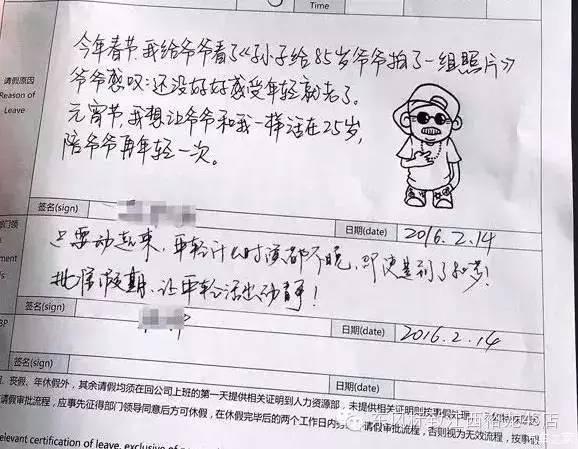 Time
今年春节,我给爷爷看了《孙子给85岁爷爷拍了一组照片》
请假原因
爷爷感叹:还没好好感受年轻就老了。
Reason of
Leave
元宵节,我想让爷爷和我一样活在25岁,
陪爷爷再年轻一次。
签名(sign)
日期(date)
2016.2.14
部门领
只要动起来,年轻什么时候都不晚,即使是到了85岁!
ment
批准假期,让年轻活出动静!
签名(sign)
日期(date)
2016.2.14
BP
签名(sign)
日期(date)
丧假、年休假外,其余请假均须在回公司上班的第一天提供相关证明到人力资源部,未提供相关证明则按事假处理
请假审批流程,应事先征得部门领导同意后方可休假,在休假完毕后的两个工作日内
请假审批流程,否则视为无效流程,按事
relevant certification of leave, exclusive of